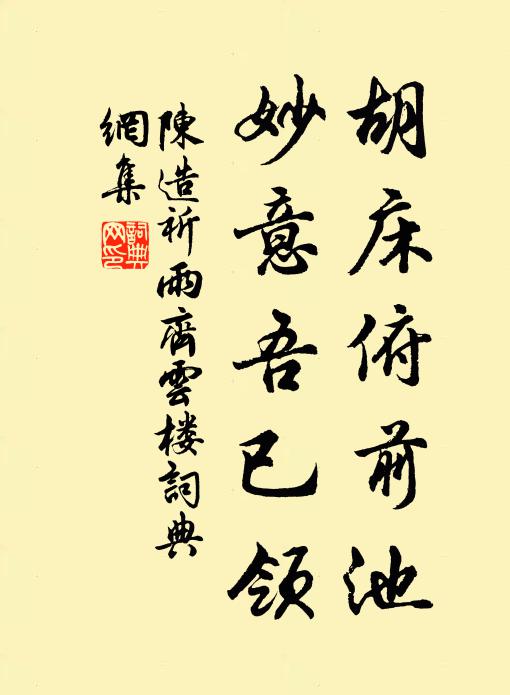 胡床俯前池
妙意吾已领
陳造祈雨齊雲楼詞典
網集
詞典
网印